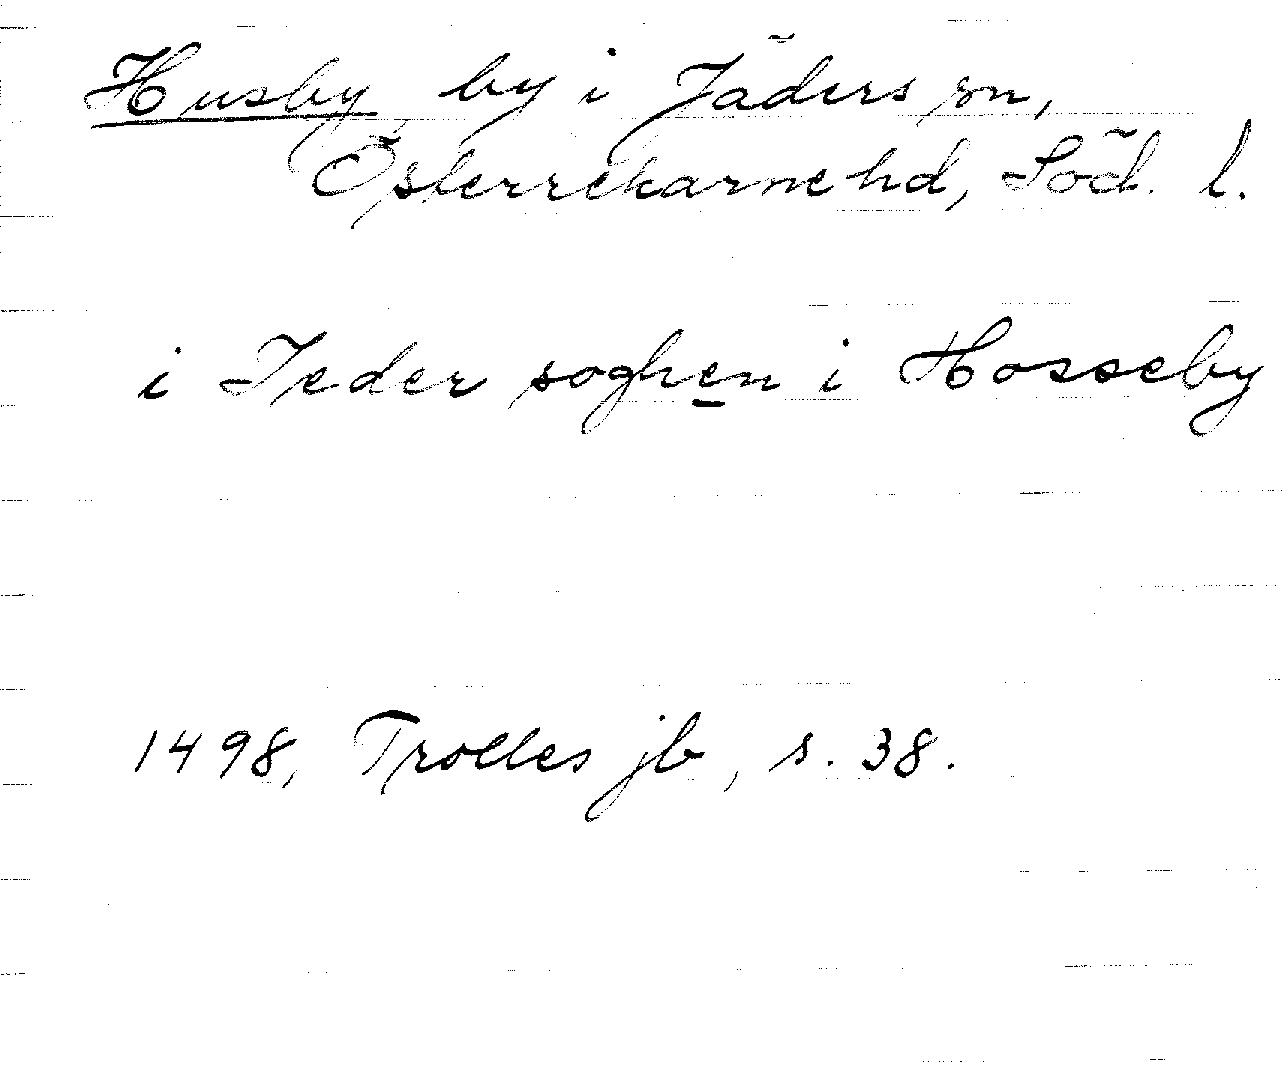 Husby by i Jäders sn,
Österrekarne hd, Söd. l.
i Jeder soghen i Hosseby
1498, Trolles jb, s. 38.